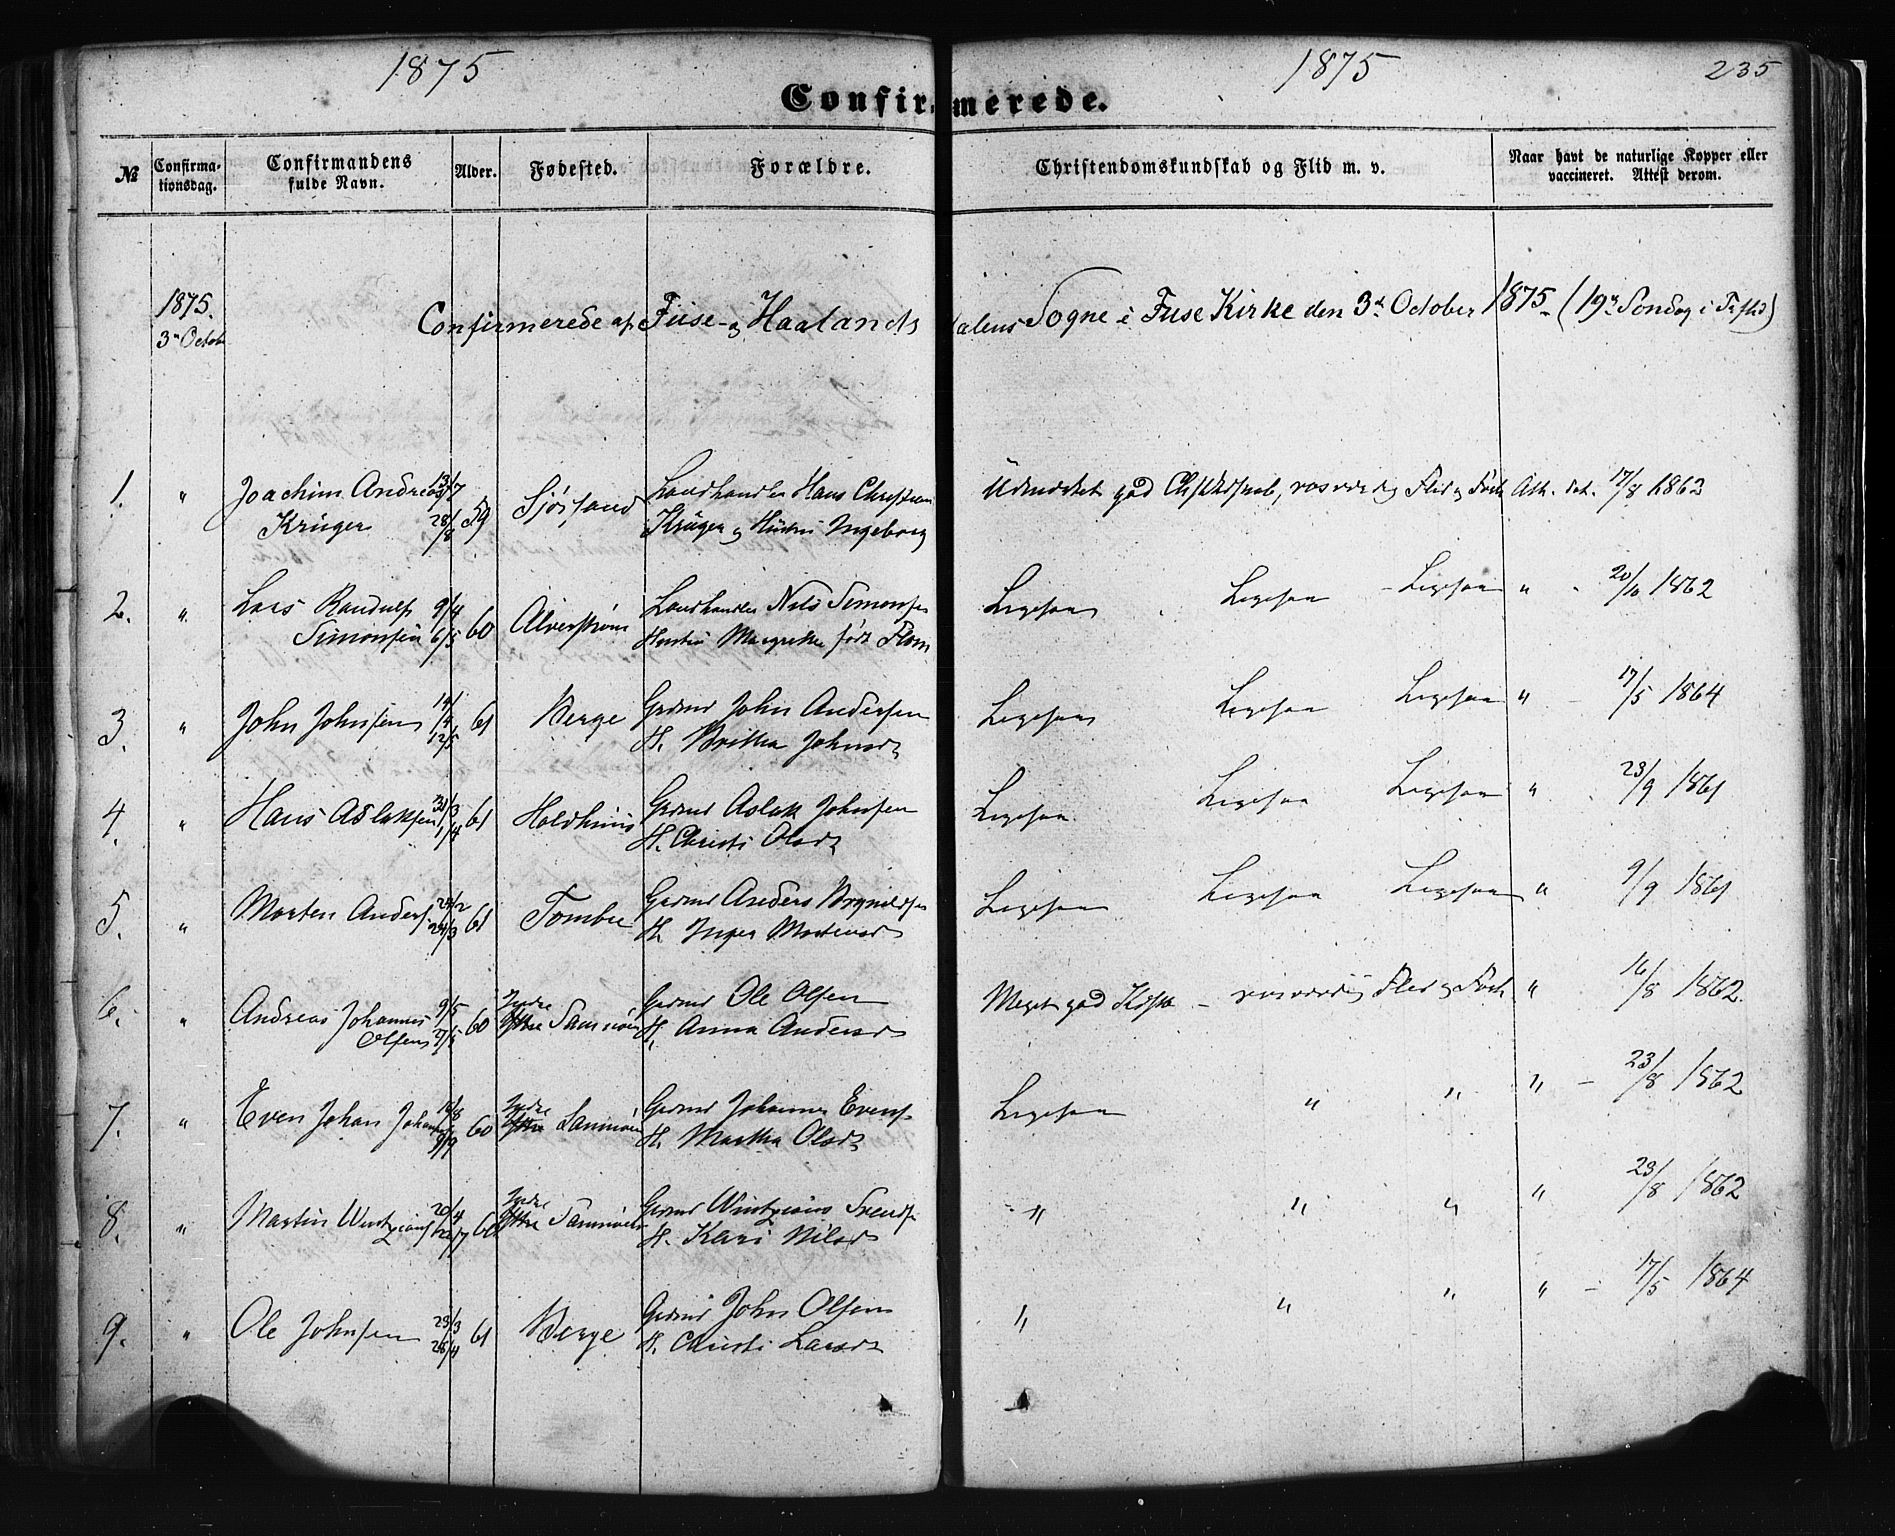 1875
1875
235
Confirmerede.
№
Confirma-
tionsdag.
Confirmandens
fulde Navn.
Alder.
Fødested.
Forældre.
Christendomskundskab og Flid m. v.
Naar havt de naturlige Kopper eller
vaccineret. Attest derom.
1875.
3die Octob
Confirmerede af Fuse- og Haalandsdalens Sogne i Fuse Kirke den 3d October 1875 (19de Søndag i Trftis)
1. " Joachim Andreas 13/7 59 Sjøsand Landhandler Hans Christian
Krüger 28/8 Krüger og Hustru Ingeborg
Udmærket god Chrstkdskab, rosværdig Flid og Forh Atk. dat. 17/8 1863
2. " Lars Randulf 9/4 60 Alverstrøm Landhandler Nils Simonsen
Simonsen 6/5 Hustru Margrethe født Flom
Ligesaa Ligesaa - Ligesaa " - 20/10 1862
3. " John Johnsen 14/4 12/5 61 Berge Grdmd John Andersen
H. Brittha Johnsdr
Ligesaa Ligesaa Ligesaa " - 17/5 1864
4. " Hans Aslaksen 31/3 1/4 61 Holdhuus Grdmd Aslak Johnsen
H. Christi Olsdr
Ligesaa Ligesaa Ligesaa " 23/9 1861
5. " Morten Anders. 24/3 61 Tombre Grdmd Anders Brynildsen
H. Inger Mortensdr
Ligesaa Ligesaa Ligesaa " 9/9 1861
6. " Andreas Johannes 9/5 60 Indre Samnøen Grdmd Ole Olsen
Olsen 27/5 H. Anna Andersdr
Meget god Kdskb - rosværdig Flid og Forh " 16/8 1862.
7. " Even Johan Johannes 9/9 60 Indre Samnøen Grdmd Johannes Evens.
H. Martha Olsdr
Ligesaa " " " - 23/8 1862
8. " Martin Wintzians 20/4 60 Indre Samnøen Grdmd Wintzians Svends.
H. Kari Nilsdr
" " " " 23/8 1862
9. " Ole Johnsen 23/3 26/4 61 Berge Grdmd John Olsen
H. Christi Larsdr
" " " " - 17/5 1864